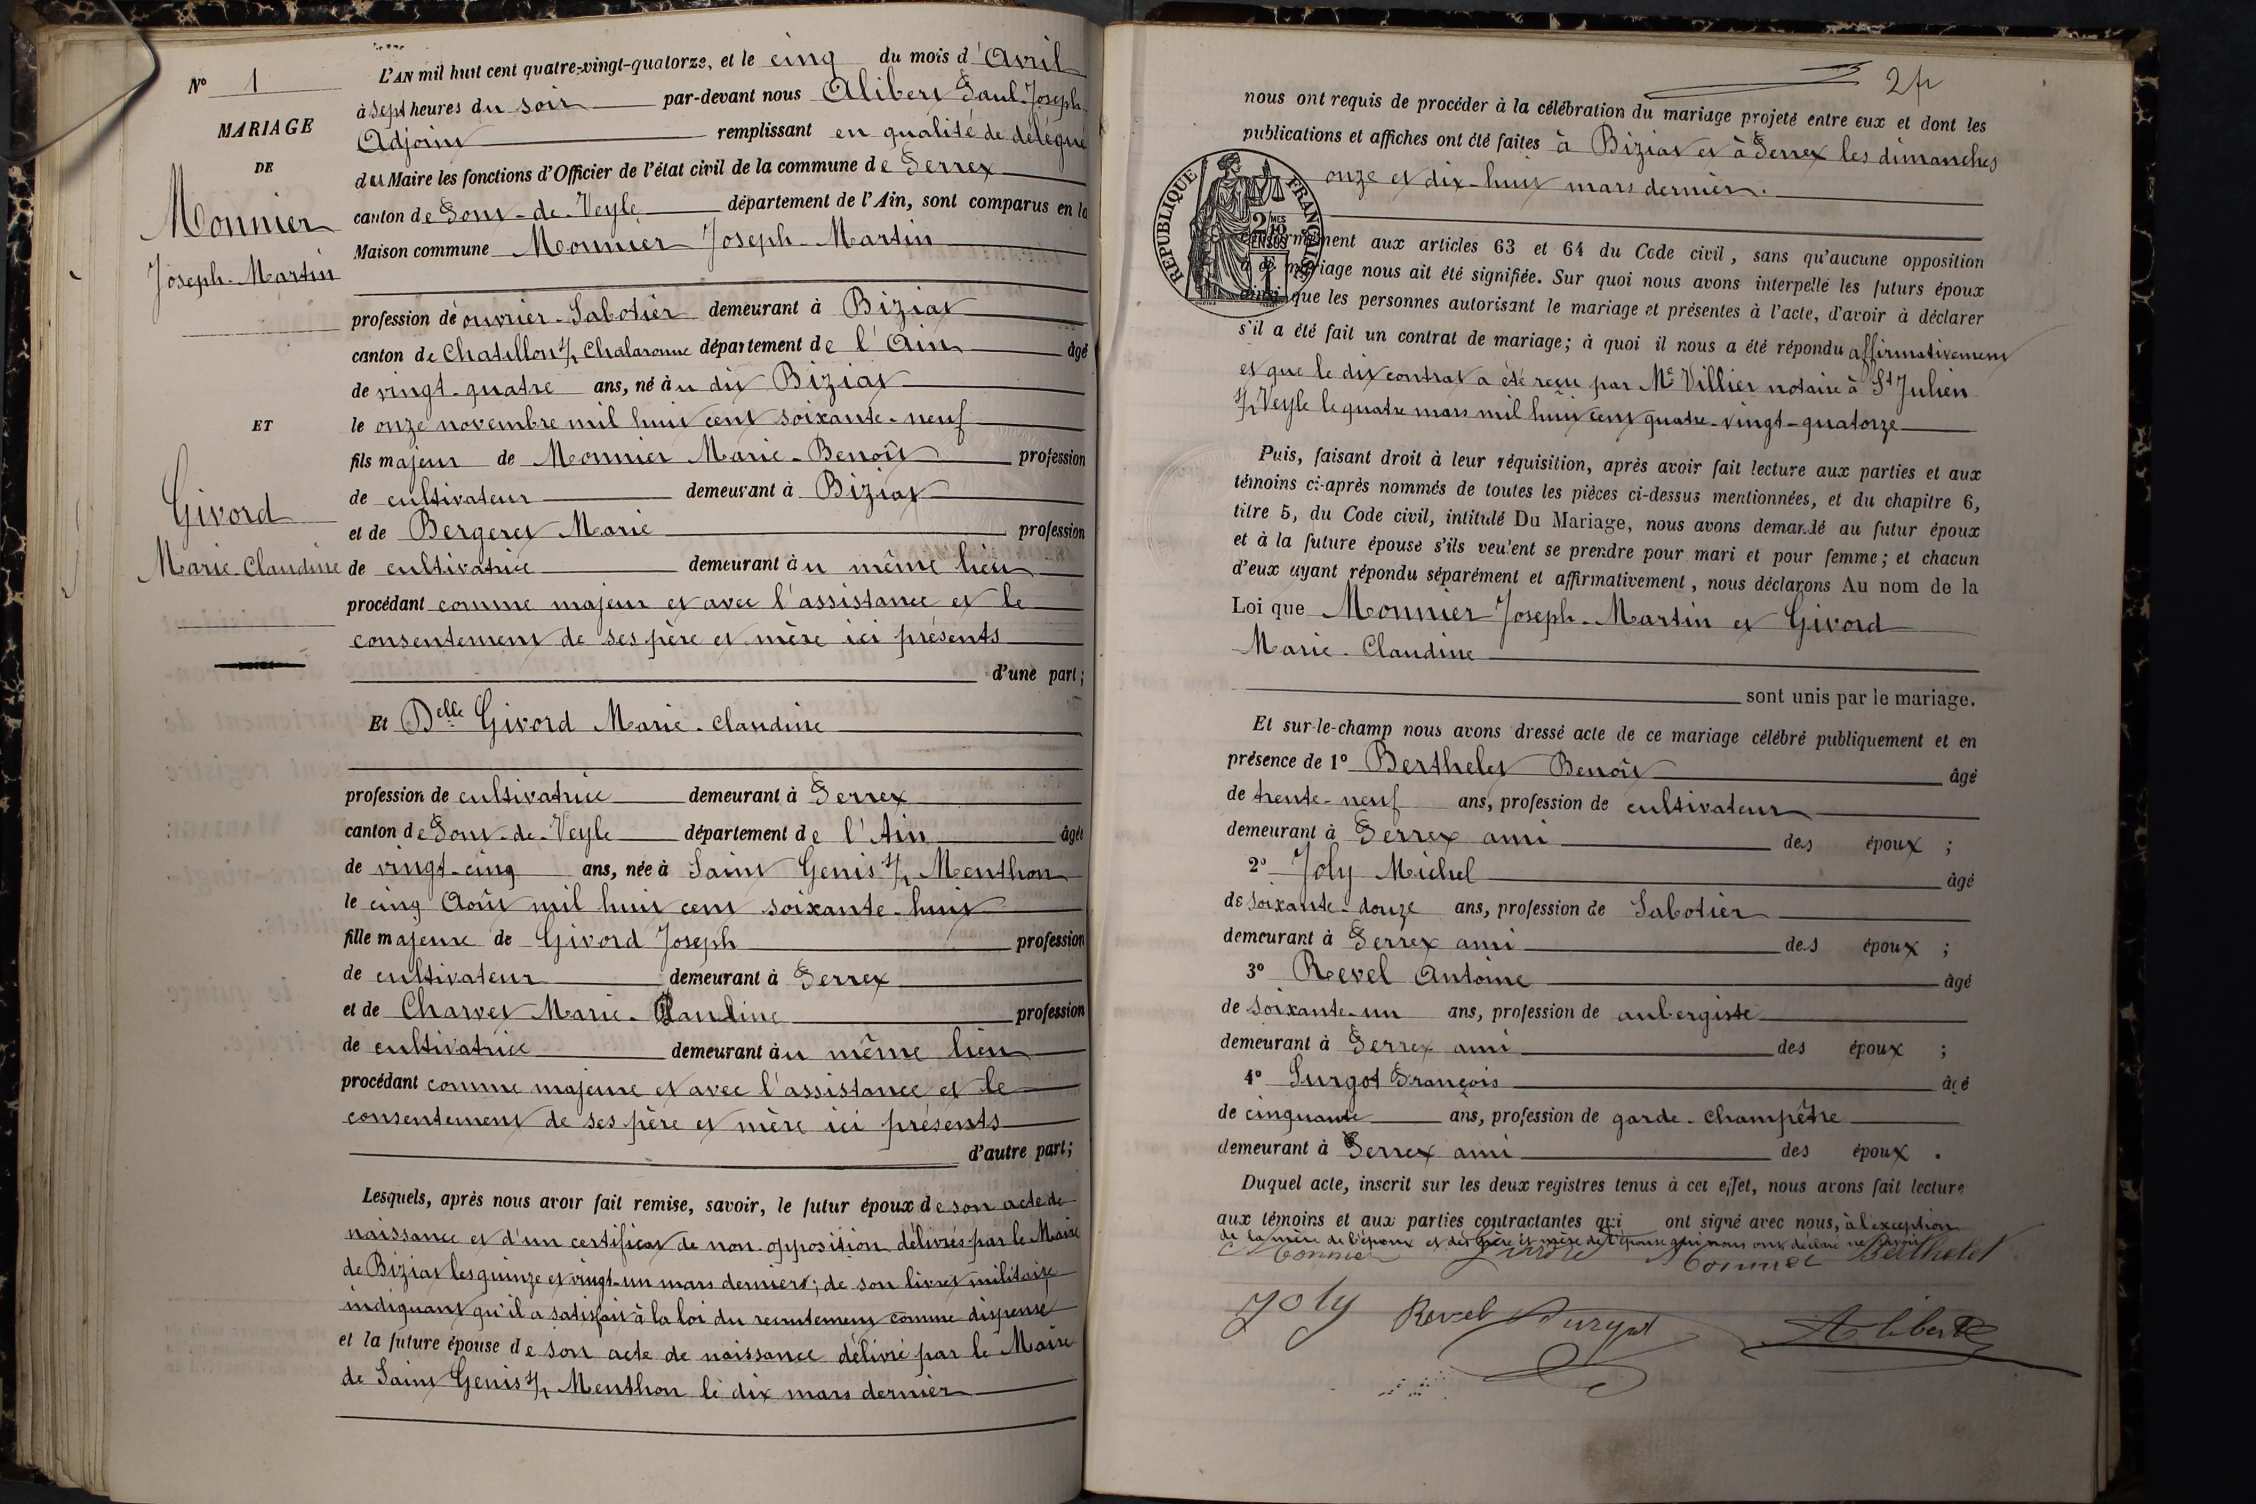 N° 1
MARIAGE
DE
Monnier
Joseph-Martin
ET
Givord
Marie-Claudine
L'AN mil huit cent quatre-vingt-quatorze, et le cinq du mois d'Avril
à sept heures du soir par-devant nous Alibert Paul-Joseph
Adjoint remplissant en qualité de délégué
du Maire les fonctions d'Officier de l'état civil de la commune de Perrex
canton de Pont-de-Veyle département de l'Ain, sont comparus en la
Maison commune Monnier Joseph-Martin
profession de ouvrier-Sabotier demeurant à Biziat
canton de Chatillon s/ Chalaronne département de l'Ain âgé
de vingt-quatre ans, né à u dit Biziat
le onze novembre mil huit cent soixante-neuf
fils majeur de Monnier Marie-Benoît profession
de cultivateur demeurant à Biziat
et de Bergeret Marie profession
de cultivatrice demeurant à u même lieu
procédant comme majeur et avec l'assistance et le
consentement de ses père et mère ici présents
d'une part;
Et Delle Givord Marie-Claudine
profession de cultivatrice demeurant à Perrex
canton de Pont-de-Veyle département de l'Ain âgée
de vingt-cinq ans, née à Saint Genis s/ Menthon
le cinq Août mil huit cent soixante-huit
fille majeure de Givord Joseph profession
de cultivateur demeurant à Perrex
et de Charvet Marie-Claudine profession
de cultivatrice demeurant à u même lieu
procédant comme majeure et avec l'assistance et le
consentement de ses père et mère ici présents
d'autre part;
Lesquels, après nous avoir fait remise, savoir, le futur époux de son acte de
naissance et d'un certificat de non opposition délivrés par le Maire
de Biziat les quinze et vingt-un mars derniers; de son livret militaire
indiquant qu'il a satisfait à la loi du recrutement comme dispensé
et la future épouse de son acte de naissance délivré par le Maire
de Saint Genis s/ Menthon le dix mars dernier
24
nous ont requis de procéder à la célébration du mariage projeté entre eux et dont les
publications et affiches ont été faites à Biziat et à Perrex les dimanches
onze et dix-huit mars dernier.
RÉPUBLIQUE FRANÇAISE
conformément aux articles 63 et 64 du Code civil, sans qu'aucune opposition
à ce mariage nous ait été signifiée. Sur quoi nous avons interpellé les futurs époux
ainsi que les personnes autorisant le mariage et présentes à l'acte, d'avoir à déclarer
s'il a été fait un contrat de mariage; à quoi il nous a été répondu affirmativement
et que le dit contrat a été reçu par Me Villier notaire à St Julien
s/ Veyle le quatre mars mil huit cent quatre-vingt-quatorze
Puis, faisant droit à leur réquisition, après avoir fait lecture aux parties et aux
témoins ci-après nommés de toutes les pièces ci-dessus mentionnées, et du chapitre 6,
titre 5, du Code civil, intitulé Du Mariage, nous avons demandé au futur époux
et à la future épouse s'ils veulent se prendre pour mari et pour femme; et chacun
d'eux ayant répondu séparément et affirmativement, nous déclarons Au nom de la
Loi que Monnier Joseph-Martin et Givord
Marie-Claudine
sont unis par le mariage.
Et sur-le-champ nous avons dressé acte de ce mariage célébré publiquement et en
présence de 1° Berthelet Benoît âgé
de trente-neuf ans, profession de cultivateur
demeurant à Perrex ami des époux ;
2° Joly Michel âgé
de soixante-douze ans, profession de Sabotier
demeurant à Perrex ami des époux ;
3° Revel Antoine âgé
de soixante-un ans, profession de aubergiste
demeurant à Perrex ami des époux ;
4° Surgot François âgé
de cinquante ans, profession de garde-champêtre
demeurant à Perrex ami des époux.
Duquel acte, inscrit sur les deux registres tenus à cet effet, nous avons fait lecture
aux témoins et aux parties contractantes qui ont signé avec nous, à l'exception
de la mère de l'époux et des père et mère de l'épouse qui nous ont déclaré ne savoir
Monnier Givord Monnier Berthelet
Joly Revel Surgot Alibert